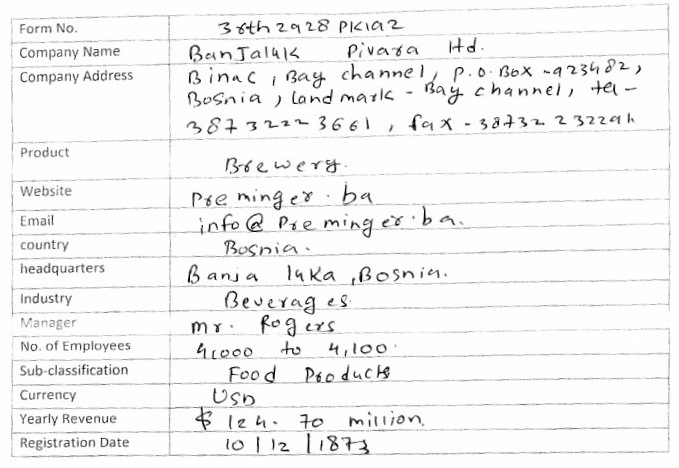 Form No. 38th2928PK1a2
Company Name BanJaluk Pivara Ltd.
Company Address Binac, Bay channel, P.O. Box -923482,
Bosnia, landmark - Bay channel, tel -
38732223661, fax - 3873223229h
Product Brewery.
Website Preminger.ba
Email info@Preminger.ba.
country Bosnia.
headquarters Banja luka, Bosnia.
Industry Beverages.
Manager Mr. Rogers
No. of Employees 4,000 to 4,100.
Sub-classification Food Products
Currency USD
Yearly Revenue $ 124.70 million.
Registration Date 10|12|1873